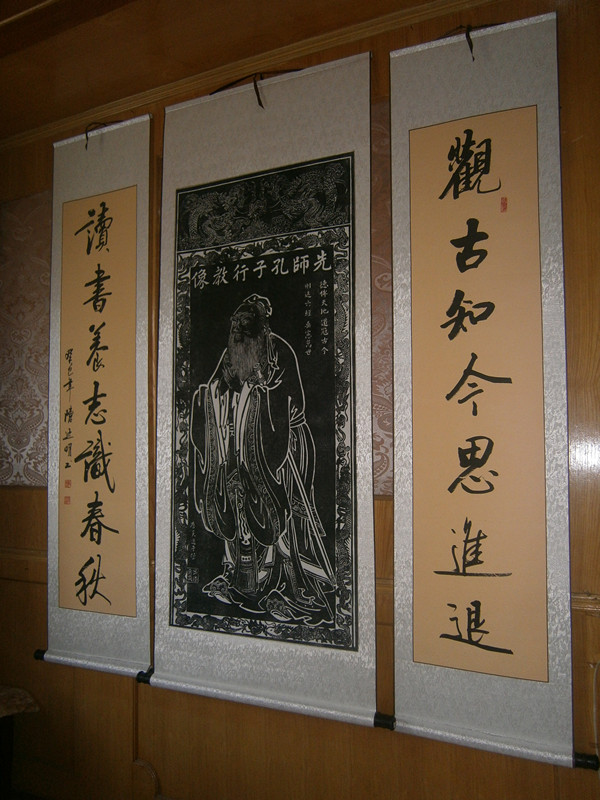 觀古知今思進退
先師孔子行教像
德侔天地 道冠古今
刪述六經 垂憲萬世
讀書養志識春秋
癸巳年